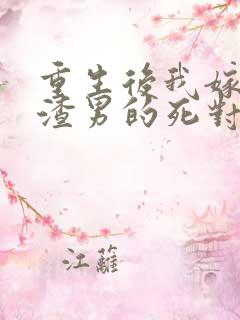 重生後我嫁
渣男的死對
江蘺